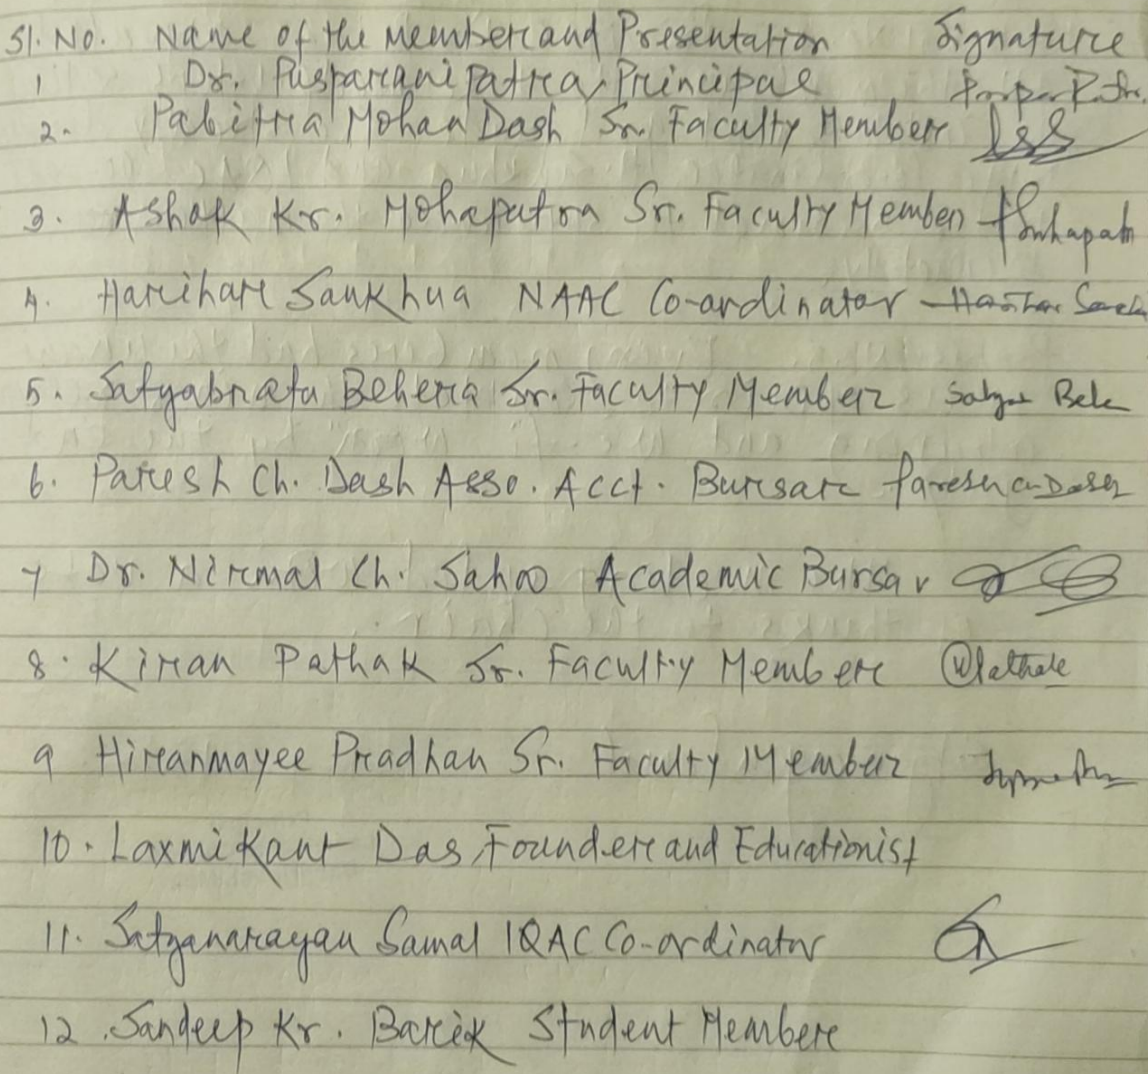 Sl. No. Name of the Member and Presentation Signature
1 Dr. Pusparani Patra, Principal
2. Pabitra Mohan Dash Sr. Faculty Member
3. Ashok Kr. Mohapatra Sr. Faculty Member
4. Harihar Sankhua NAAC Co-ordinator
5. Satyabrata Behera Sr. Faculty Member
6. Paresh Ch. Dash Asso. Acct. Bursar Paresh Ch Dash
7 Dr. Nirmal Ch. Sahoo Academic Bursar
8. Kiran Pathak Sr. Faculty Member
9 Hiranmayee Pradhan Sr. Faculty Member
10. Laxmikant Das, Founder and Educationist
11. Satyanarayan Samal IQAC Co-ordinator
12. Sandeep Kr. Barik Student Member